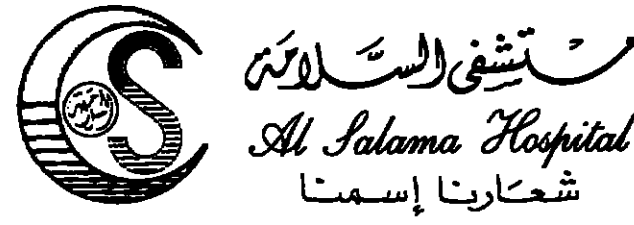 مستشفى السَّلامَة
Al Salama Hospital
شعَارنا إسمنا
S